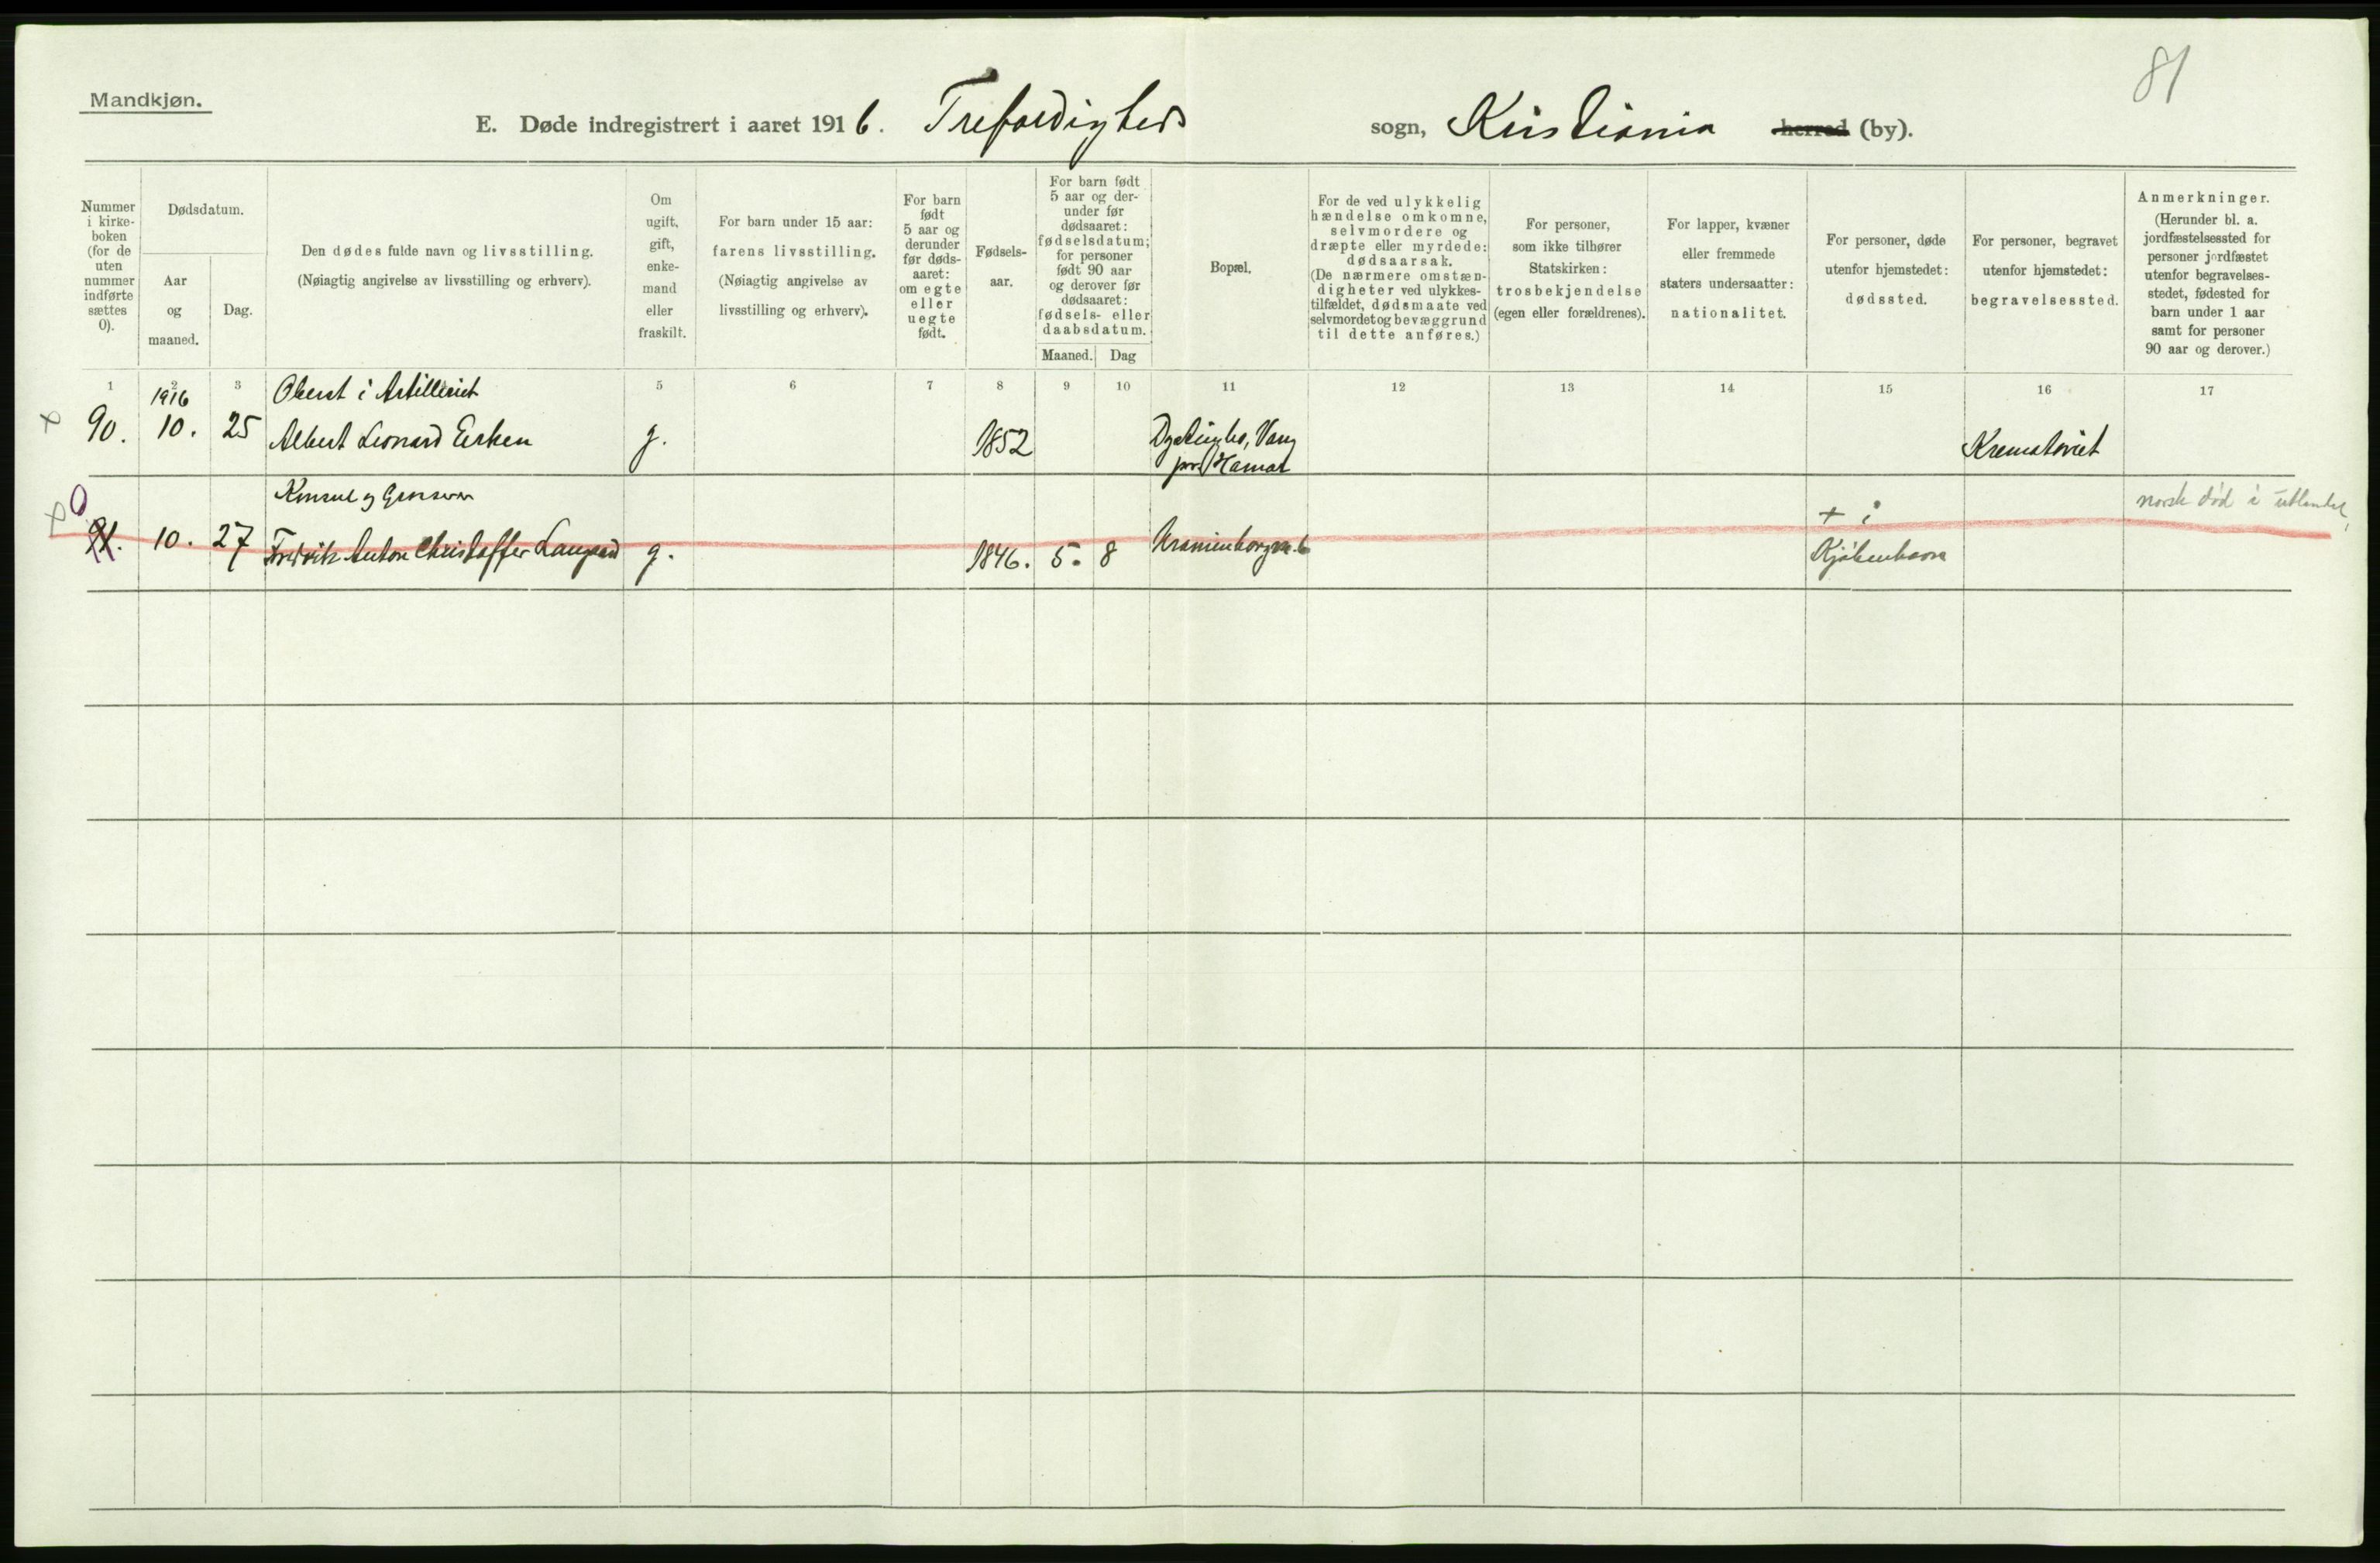 81
Mandkjøn.
E. Døde indregistrert i aaret 1916. Trefoldigheds sogn, Kristiania herred (by).
Nummer
i kirke-
boken
(for de
uten
nummer
indførte
sættes
0).
Dødsdatum.
Aar
og
maaned.
Dag.
Den dødes fulde navn og livsstilling.
(Nøiagtig angivelse av livsstilling og erhverv).
Om
ugift,
gift,
enke-
mand
eller
fraskilt.
For barn under 15 aar:
farens livsstilling.
(Nøiagtig angivelse av
livsstilling og erhverv).
For barn
født
5 aar og
derunder
før døds-
aaret:
om egte
eller
uegte
født.
Fødsels-
aar.
For barn født
5 aar og der-
under før
dødsaaret:
fødselsdatum;
for personer
født 90 aar
og derover før
dødsaaret:
fødsels- eller
daabsdatum.
Maaned. Dag
Bopæl.
For de ved ulykkelig
hændelse omkomne,
selvmordere og
dræpte eller myrdede:
dødsaarsak.
(De nærmere omstæn-
digheter ved ulykkes-
tilfældet, dødsmaate ved
selvmordet og bevæggrund
til dette anføres.)
For personer,
som ikke tilhører
Statskirken:
trosbekjendelse
(egen eller forældrenes).
For lapper, kvæner
eller fremmede
staters undersaatter:
nationalitet.
For personer, døde
utenfor hjemstedet:
dødssted.
For personer, begravet
utenfor hjemstedet:
begravelsessted.
Anmerkninger.
(Herunder bl. a.
jordfæstelsessted for
personer jordfæstet
utenfor begravelses-
stedet, fødested for
barn under 1 aar
samt for personer
90 aar og derover.)
1 2 3 5 6 7 8 9 10 11 12 13 14 15 16 17
1916 Oberst i Artilleriet
x 90. 10. 25 Albert Leonard g. 1852 Vang Krematoriet
pr. Hamar
0 Konsul og norsk død i utlandet
x 91. 10. 27 Fredrik Anton Christoffer Langaard g. 1846. 5. 8 Uranienborgv. 6 + i
Kjøbenhavn